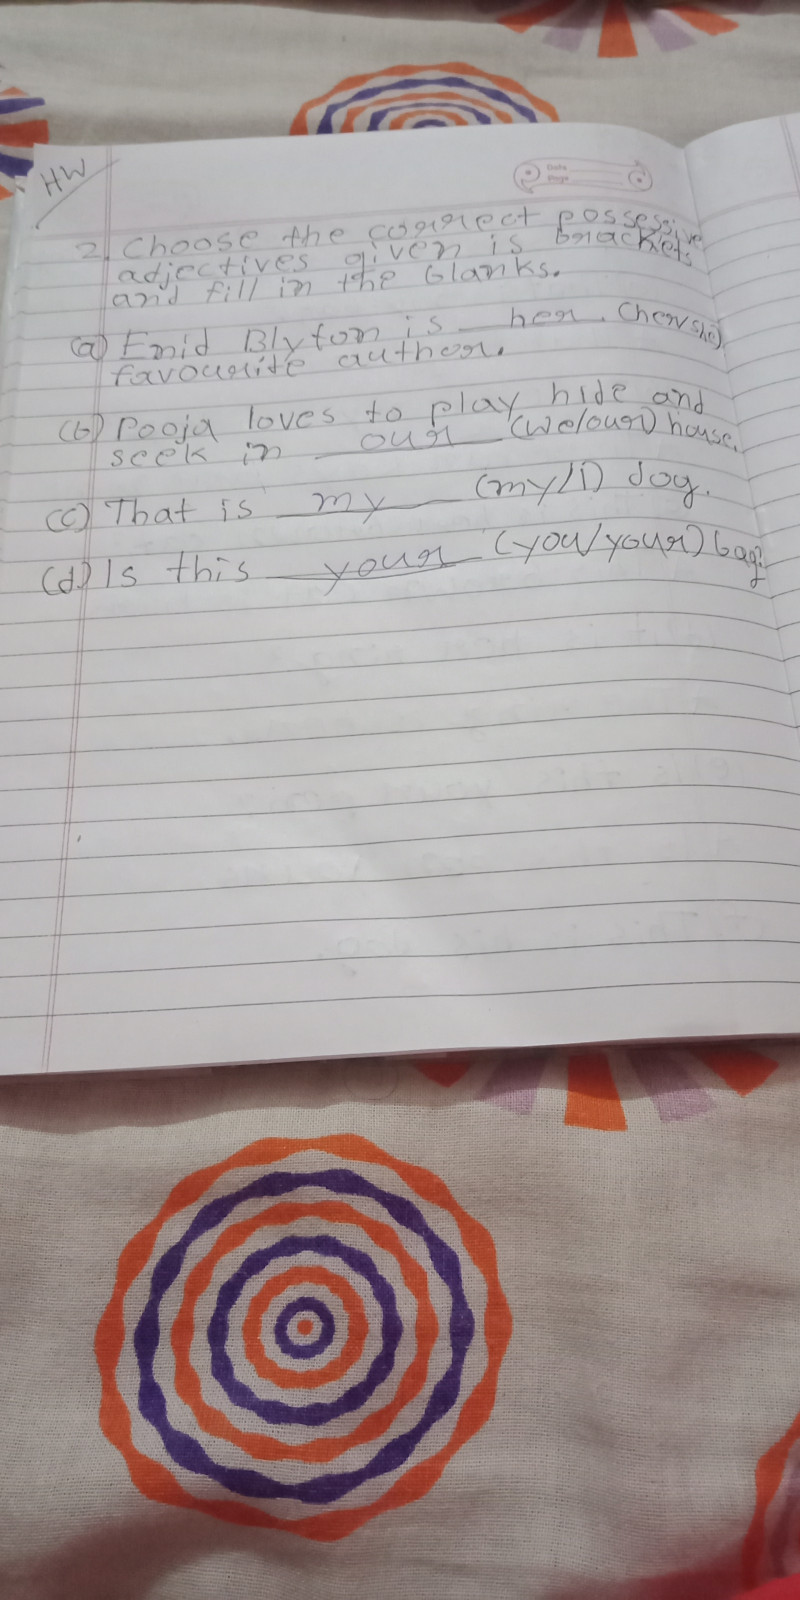 HW
Date
Page
2. Choose the correct possessive
adjectives given is brackets
and fill in the blanks.
(a) Enid Blyton is her. (her/she)
favourite author.
(b) Pooja loves to play hide and
seek in our (we/our) house.
(c) That is my (my/i) dog.
(d) Is this your (you/your) bag?